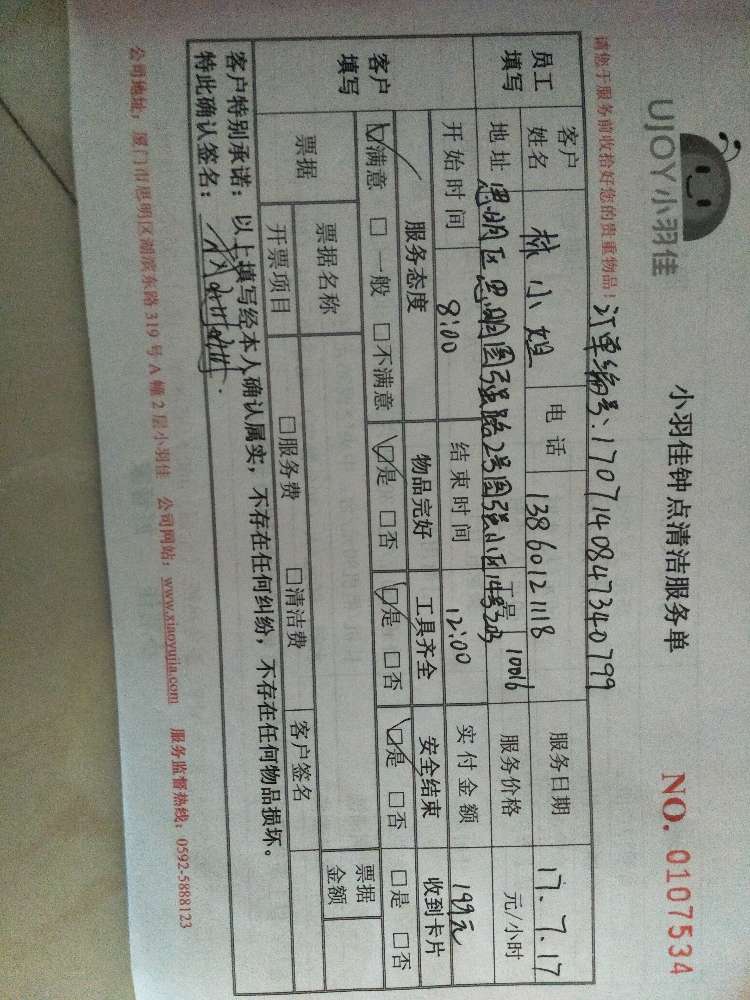 UJOY小羽佳
小羽佳钟点清洁服务单
NO. 0107534
请您于服务前收拾好您的贵重物品！
订单编号:1707140847340799
员工填写 客户姓名 林小姐 电话 13860121118 服务日期 17.7.17
地址 思明区思明国强路2号国强小区 工号 10016 服务价格 元/小时
开始时间 8:00 结束时间 12:00 实付金额 199元
客户填写 服务态度 物品完好 工具齐全 安全结束 收到卡片
☑满意 □一般 □不满意 ☑是 □否 ☑是 □否 ☑是 □否 □是 □否
票据 票据名称 票据金额
开票项目 □服务费 □清洁费 客户签名
客户特别承诺：以上填写经本人确认属实，不存在任何纠纷，不存在任何物品损坏。
特此确认签名：
公司地址：厦门市思明区湖滨东路319号A幢2层小羽佳 公司网站：www.xiaoyujia.com 服务监督热线：0592-5888123